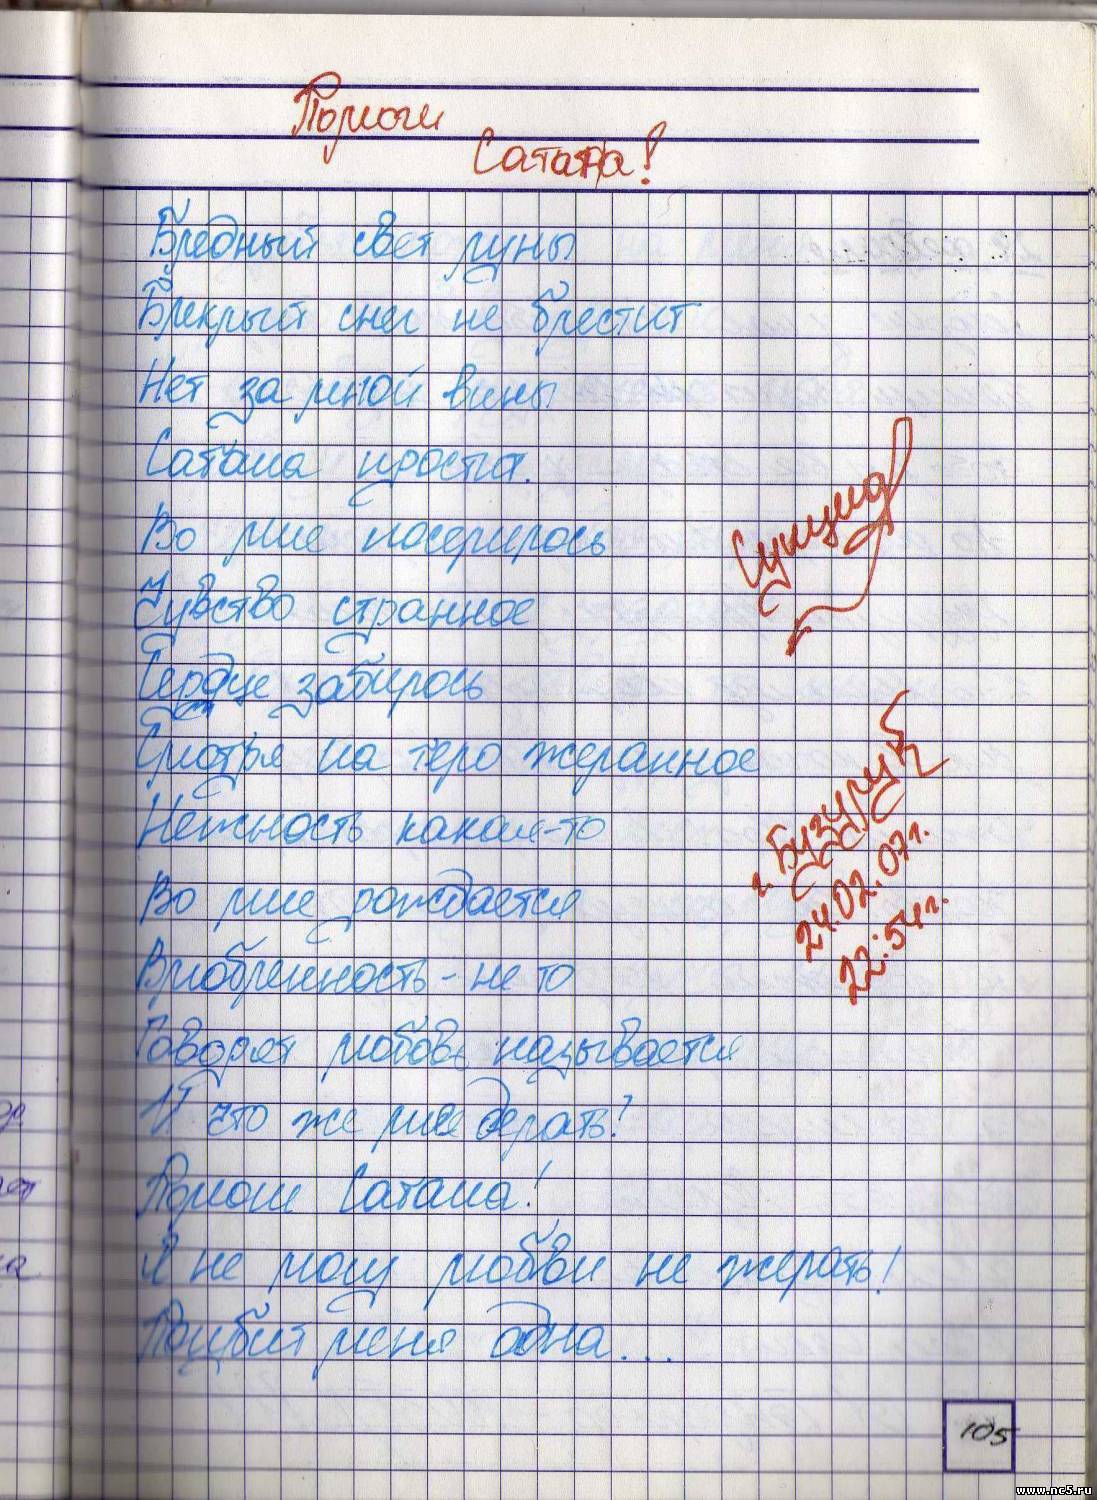 Помоги
Сатана!
Бледный свет луны
Блеклый снег не блестит
Нет за мной вины
Сатана простит.
Во мне поселилось
Чувство странное
Сердце забилось
Смотря на тело желанное
Нежность какая-то
Во мне рождается
Влюбленность - не то
Говорят любовь называется
И что же мне делать?
Помоги Сатана!
Я не могу любви не желать!
Погубит меня одна...
Суицид
г. Бузулук
24.02.07г.
22:54г.
105
www.nc5.ru